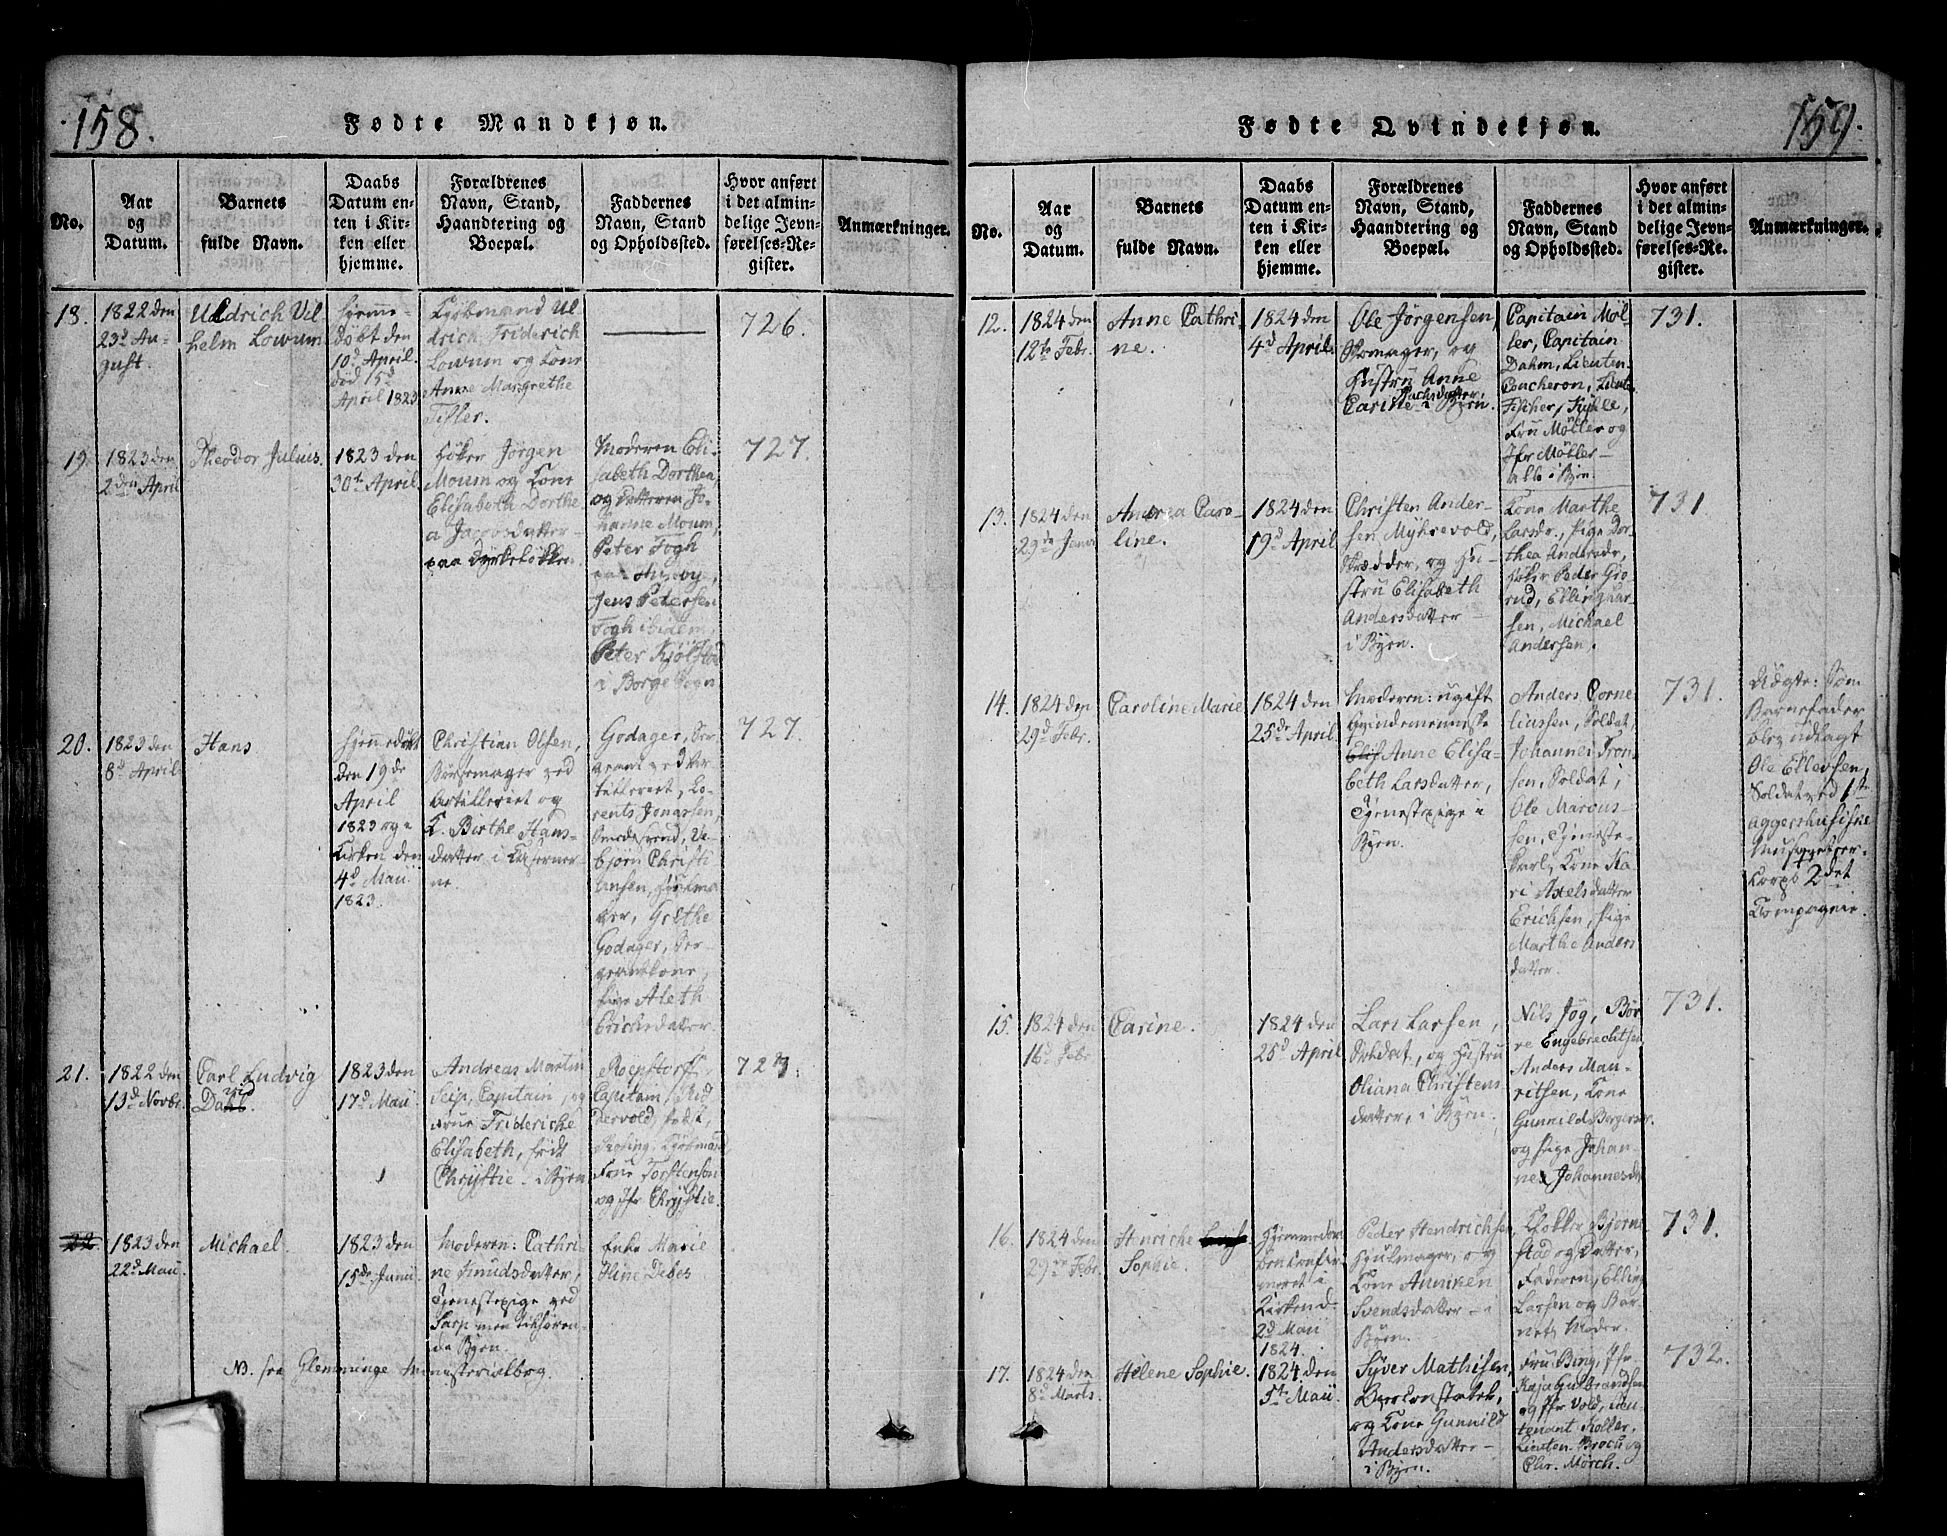 158.
Fødte Mandkjøn.
No.
Aar
og
Datum.
Barnets
fulde Navn.
Daabs
Datum en-
ten i Kir-
ken eller
hjemme.
Forældrenes
Navn, Stand,
Haandtering og
Boepæl.
Faddernes
Navn, Stand
og Opholdssted.
Hvor anført
i det almin-
delige Jevn-
førelses-Re-
gister.
Anmærkninger.
18.
1822 den
23d Au-
gust.
Uldrich Vil-
helm Lowum
Hjemme-
døbt den
10d April
død 15d
April 1823
Kjøbmand Ul
drich Friderich
Lowum og Kone
Anne Margrethe
726.
19.
1823 den
2den April
Theodor Julius.
1823 den
30te April.
Høker Jørgen
Moum og Kone
Elisabeth Dorthe
a Jacobsdatter
Moderen Eli-
sabeth Dorthea,
og Datteren Jo-
hanne Moum,
Peter Fogh
Jens Petersen
Fogh ibidem
Peter Kjølstad
i Borge Sogn
727.
20.
1823 den
8d April
Hans
Hjemmedøbt
den 19de
April
1823 og i
Kirken den
4d Maii
1823.
Christian Olsen,
Bøssemager ved
Artilleriet og
K. Birthe Hans-
datter i Caserner-
ne.
Godager, Ser-
geant ved Ar-
tilleriet, Lo-
rents Jonassen,
bjørn Christi
ansen, Hjulma
ger, Grethe
Godager, Ser-
geantkone,
Pige Aleth
Erichsdatter.
727.
21.
1822 den
13d Novbr.
Carl Ludvig
Dahl.
1823 den
17d Maii
Andreas Martin
Seip, Capitain, og
Frue Frideriche
Elisabeth, født
Chrystie. i Byen
Roepstorff
Capitain, Rid
dervold,
Kjøbmand,
Frue Torstenson
og Jfr Chrystie.
727.
22.
1823 den
22d Maii
Michael.
1823 den
15de Junii
Moderen: Cathri-
ne Knudsdatter,
Tjenestepige ved
Sarp men tilhøren-
de Byen.
Enke Marie
Stine Debes
NB. see Glemminge Ministerialbog.
159.
Fødte Qvindekjøn.
No.
Aar
og
Datum.
Barnets
fulde Navn.
Daabs
Datum en-
ten i Kir-
ken eller
hjemme.
Forældrenes
Navn, Stand,
Haandtering og
Boepæl.
Faddernes
Navn, Stand
og Opholdssted.
Hvor anført
i det almin-
delige Jevn-
førelses-Re-
gister.
Anmærkninger.
12.
1824 den
12te Febr.
Anne Cathri-
ne.
1824 den
4d April.
Ole Jørgensen,
Skomager, og
Hustru Anne
Carine Isachsdatter i Byen.
Capitain Møl-
ler, Capitain
Dahm, Lieuten.
Coucheron, Lieut.
Fischer,
Fru Møller og
Jfr Møller —
alle i Byen.
731.
13.
1824 den
29de Janu
Andrea Caro-
line.
1824 den
19d April
Christen Ander-
sen Myhrevold,
Skrædder, og Hu-
stru Elisabeth
Andersdatter —
i Byen.
Kone Marthe
Larsdr., Pige Dor-
thea Andersdr,
Høker Peder Gro
rud, Elling Lar-
sen, Michael
Andersen.
731
14.
1824 den
29d Febr.
Caroline Marie
1824 den
25de April.
Moderen: ugift
Qvindemenniske
Elis Anne Elisa-
beth Larsdatter,
Tjenestepige i
Byen.
Anders Corne
liussen, Soldat
Johannes Tron-
sen, Soldat,
Ole Marcus-
sen, Tjeneste-
karl, Kone Ka
ri Axelsdatter
Erichsen, Pige
Marthe Anders
datter.
731.
Uægte: Som
Barnefader
blev udlagt
Ole Ellevsen,
Soldat ved 1ste
Aggershusiske
Musqueteer-
Corps 2det
Compagnie.
15.
1824 den
16d Febr
Carine.
1824 den
25d April
Lars Larsen,
Soldat, og Hustru
Oliana Christens
datter, i Byen.
Nils Jøg, Bør
re Engebrechtsen
Anders Mau-
ritsen, Kone
Gunnild Børgersdr.
og Pige Johan-
ne Johannesdr
731.
16.
1824 den
29de Febr.
Henriche
Sophie.
Hjemmedøbt
confir-
meret i
Kirken d.
2d Maii
1824.
Peder Hendrichsen,
Hjulmager, og
Kone Anniken
Svendsdatter — i
Byen.
Klokker Bjørne
stad og Datter,
Faderen, Elling
Larsen og Bar-
nets Moder.
731.
17.
1824 den
8d Marts.
Helene Sophie.
1824 den
5te Maii.
Syver Mathisen,
og Kone Gunnild
Andersdatter —
i Byen.
Fru Bing, Jfr
Kaja Gulbrandsen
og Jfr Vold, Lieu-
tenant Koller,
Lieuten. Broch og
Chr. Mørch.
732.